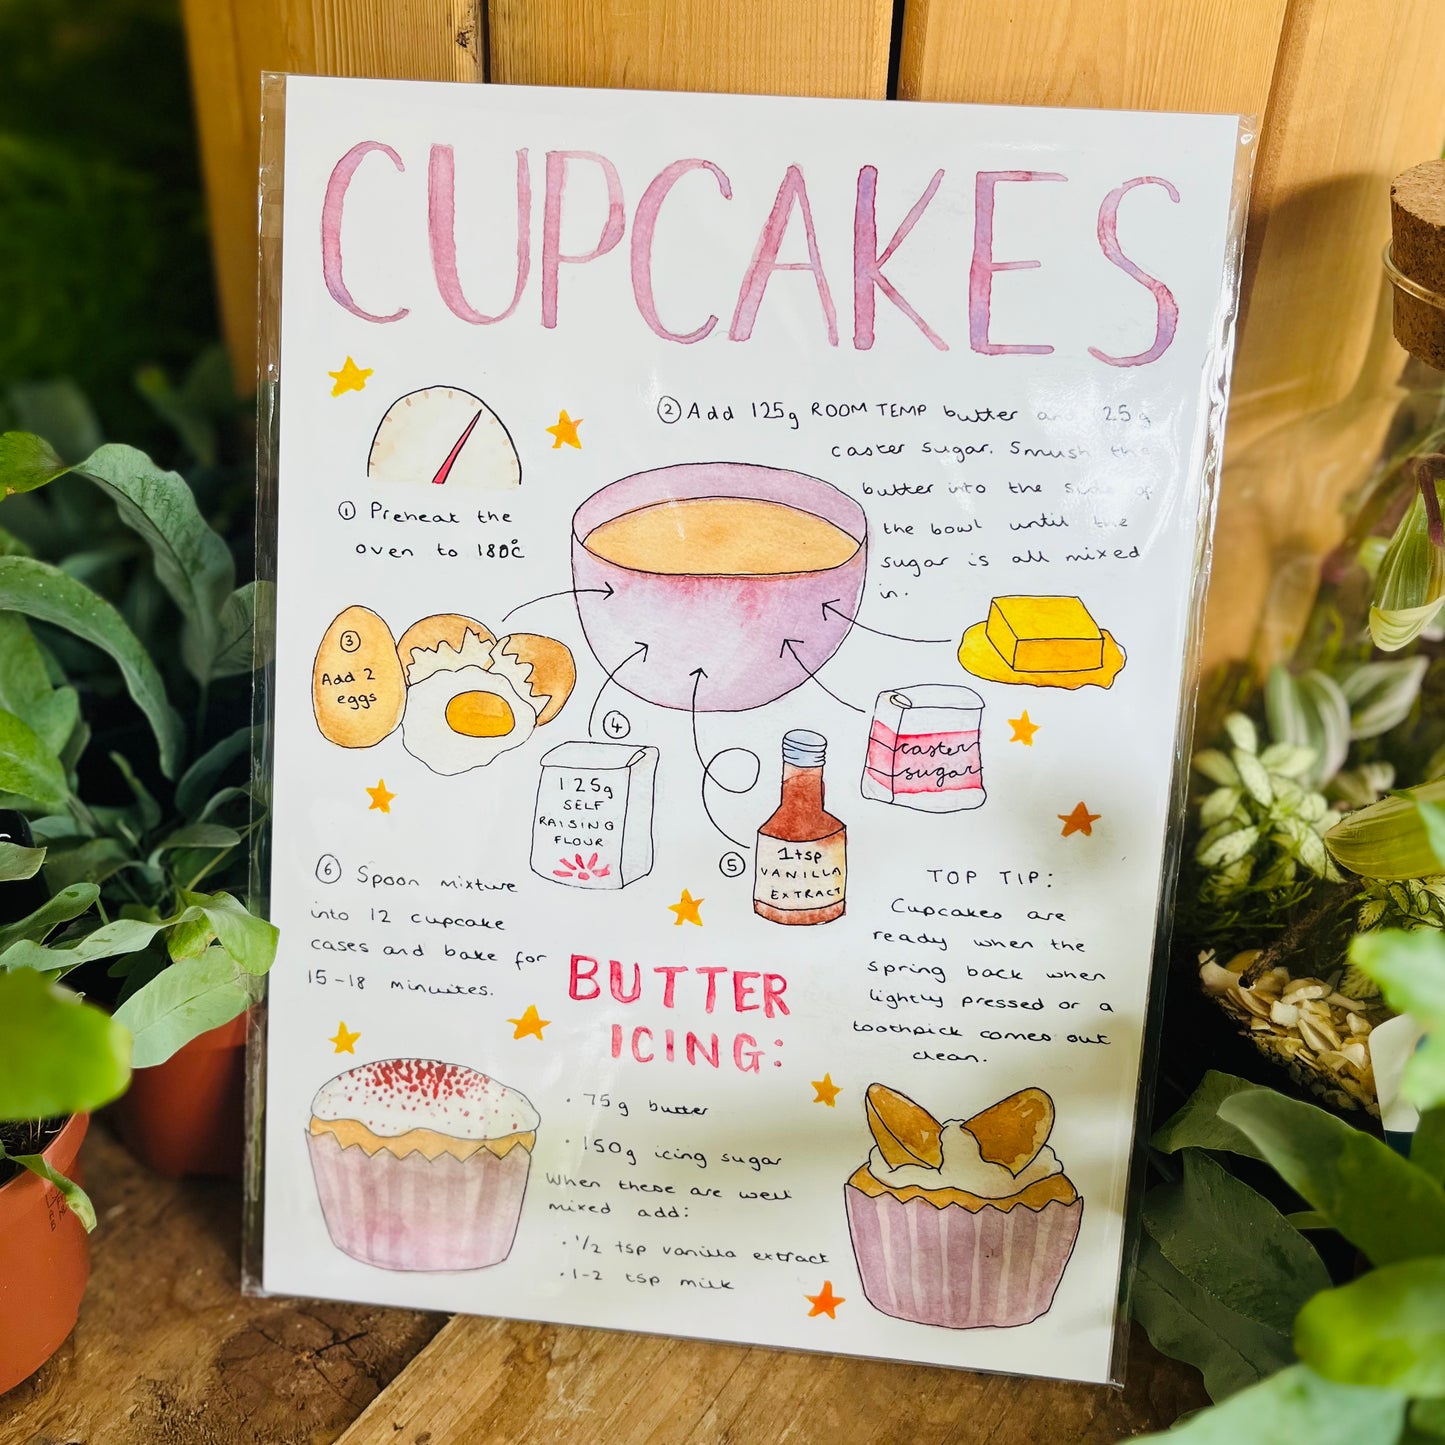 CUPCAKES
① Preheat the
oven to 180°C
② Add 125g ROOM TEMP butter and 125g
caster sugar. Smush the
butter into the side of
the bowl until the
sugar is all mixed
in.
③
Add 2
eggs
④
125g
SELF
RAISING
FLOUR
⑤
1tsp
VANILLA
EXTRACT
caster
sugar
⑥ Spoon mixture
into 12 cupcake
cases and bake for
15-18 minuites.
TOP TIP:
Cupcakes are
ready when the
spring back when
lightly pressed or a
toothpick comes out
clean.
BUTTER
ICING:
· 75g butter
· 150g icing sugar
When these are well
mixed add:
· 1/2 tsp vanilla extract
· 1-2 tsp milk